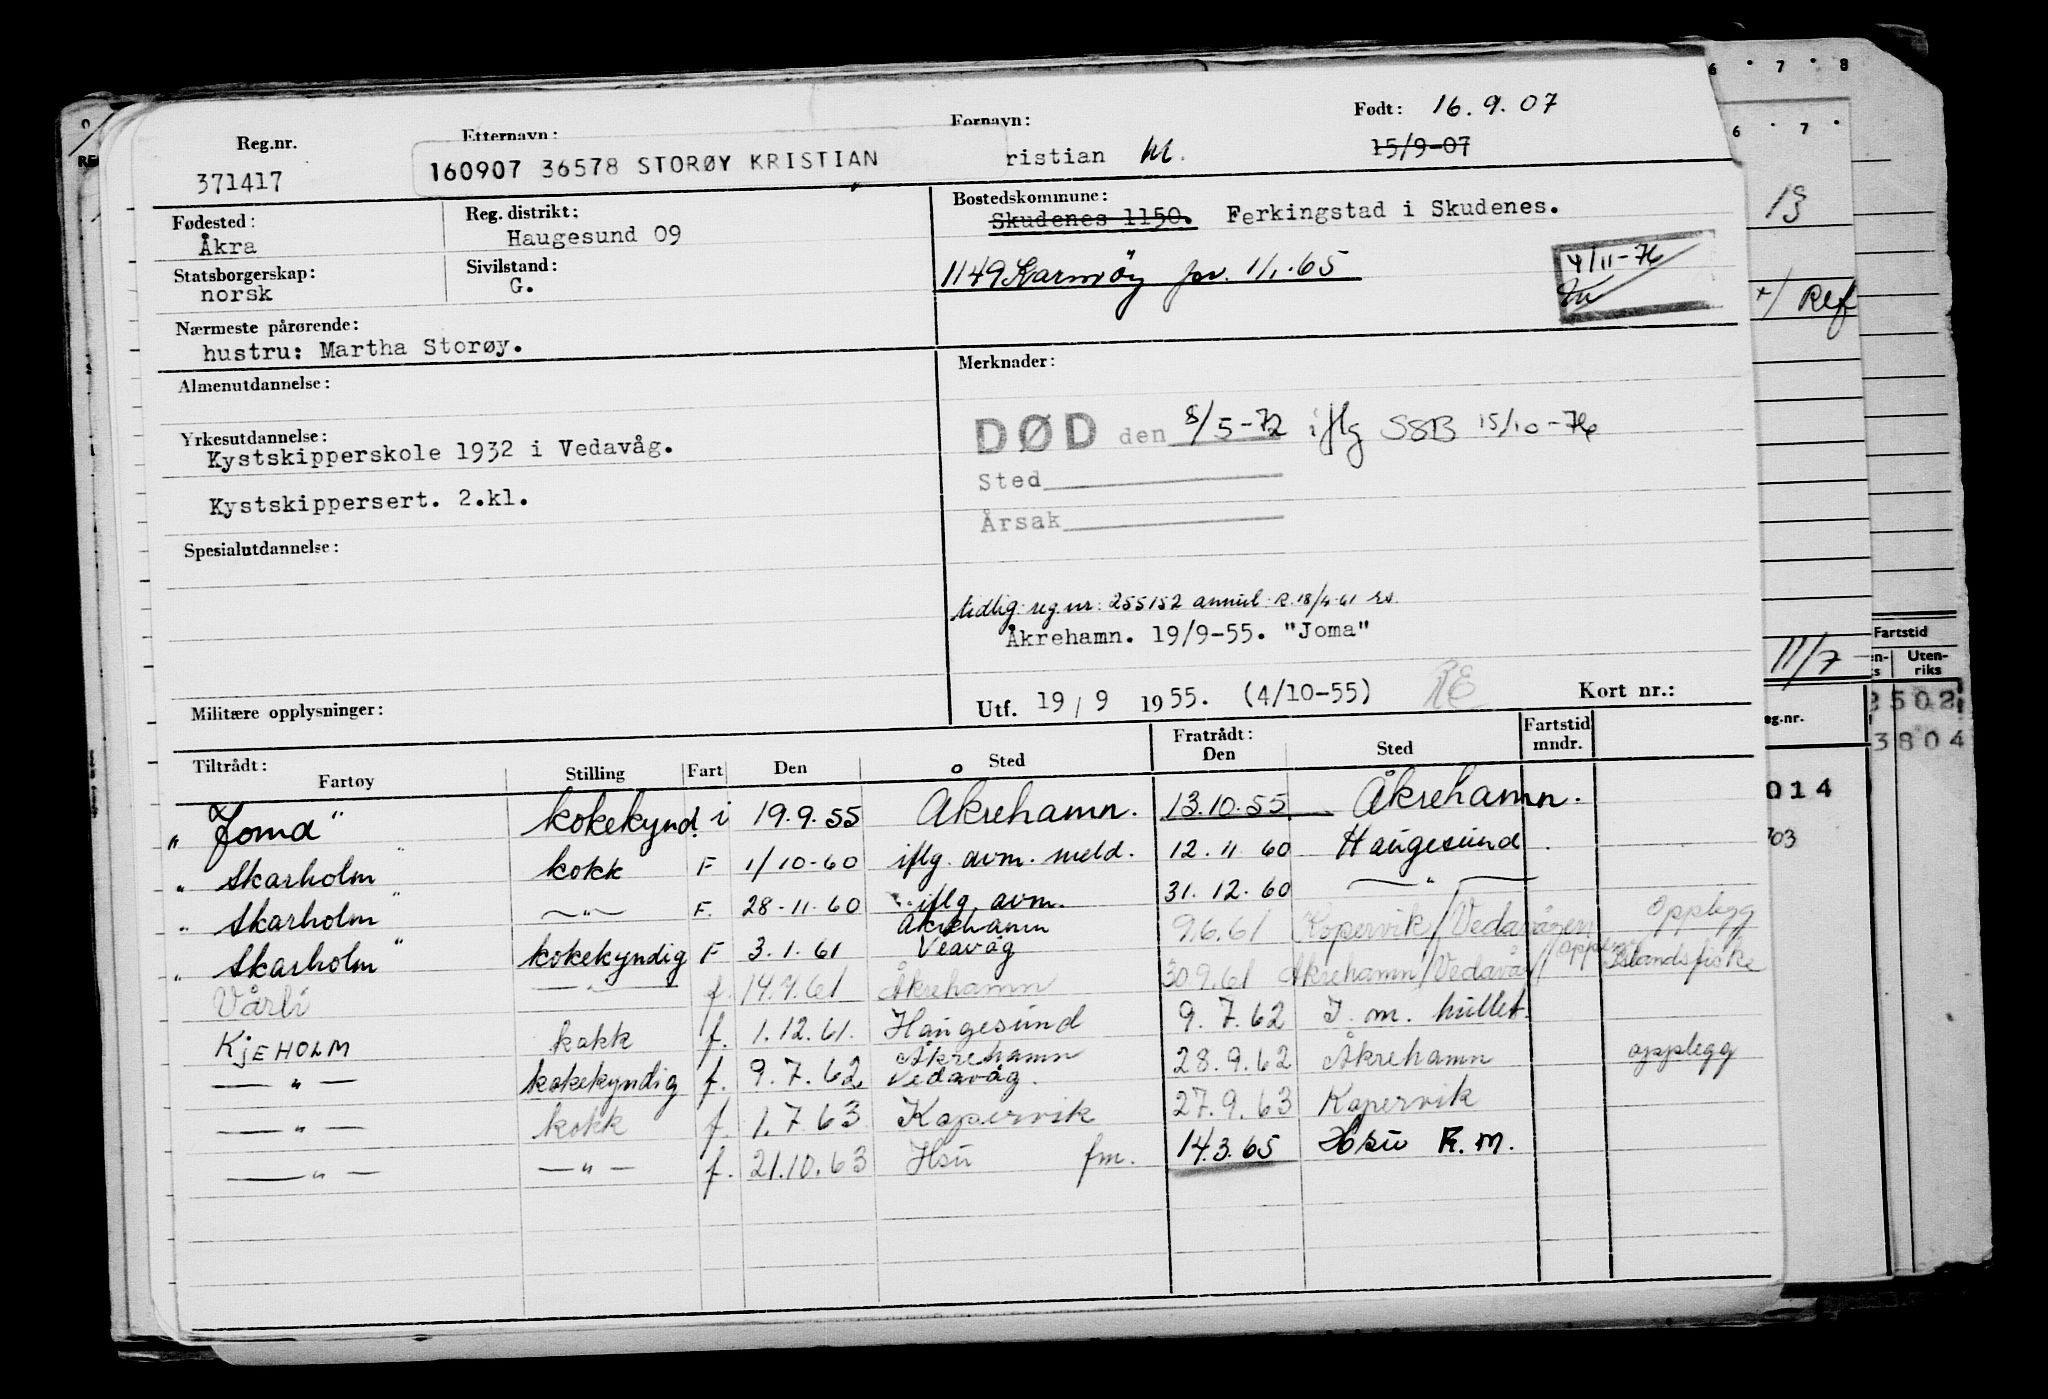 Reg.nr. Etternavn: Fornavn: Født: 16.9.07
371417 160907 36578 STORØY KRISTIAN ristian M. 15/9-07
Fødested: Reg. distrikt: Bostedskommune:
Åkra Haugesund 09 Skudenes 1150. Ferkingstad i Skudenes.
Statsborgerskap: Sivilstand:
norsk G. 1149 Karmøy pr. 1/1-65 4/11-76
Nærmeste pårørende:
hustru: Martha Storøy.
Almenutdannelse: Merknader:
Yrkesutdannelse: DØD den 8/5-72 iflg SSB 15/10-76
Kystskipperskole 1932 i Vedavåg.
Sted
Kystskippersert. 2.kl.
Årsak
Spesialutdannelse:
tidlig. reg.nr: 255152 annul. R. 18/4-61 rs.
Åkrehamn. 19/9-55. "Joma"
Militære opplysninger: Utf. 19/9 1955. (4/10-55) RE Kort nr.:
Tiltrådt: Fratrådt: Fartstid
Fartøy Stilling Fart Den Sted Den Sted mndr.
"Joma" kokekynd. i 19.9.55 Åkrehamn. 13.10.55 Åkrehamn.
"Skarholm" kokk F 1/10-60 iflg. avm. meld. 12.11 60 Haugesund
"Skarholm" —"— F. 28-11-60 iflg. avm. 31.12.60 —"—
"Skarholm" kokekyndig F 3.1.61 Åkrehamn Veavåg 9.6.61 Kopervik/Vedavågen opplegg
Vårli —"— f. 14.9.61 Åkrehamn 30.9.61 Åkrehamn/Vedavåg/ Islandsfiske
KjEHOLM kokk f. 1.12.61. Haugesund 9.7.62 I. m. hullet.
—"— kokekyndig f. 9.7.62 Åkrehamn Vedavåg. 28.9.62 Åkrehamn opplegg
—"— kokk f. 1.7 63 Kopervik 27.9.63 Kopervik
—"— —"— f. 21.10.63 Hsu fm. 14.3.65 Hsu R.M.
6 7 8
6 7
13
Ref
11/7
Fartstid
Uten-
riks
2502
3804
eg.nr.
014
703